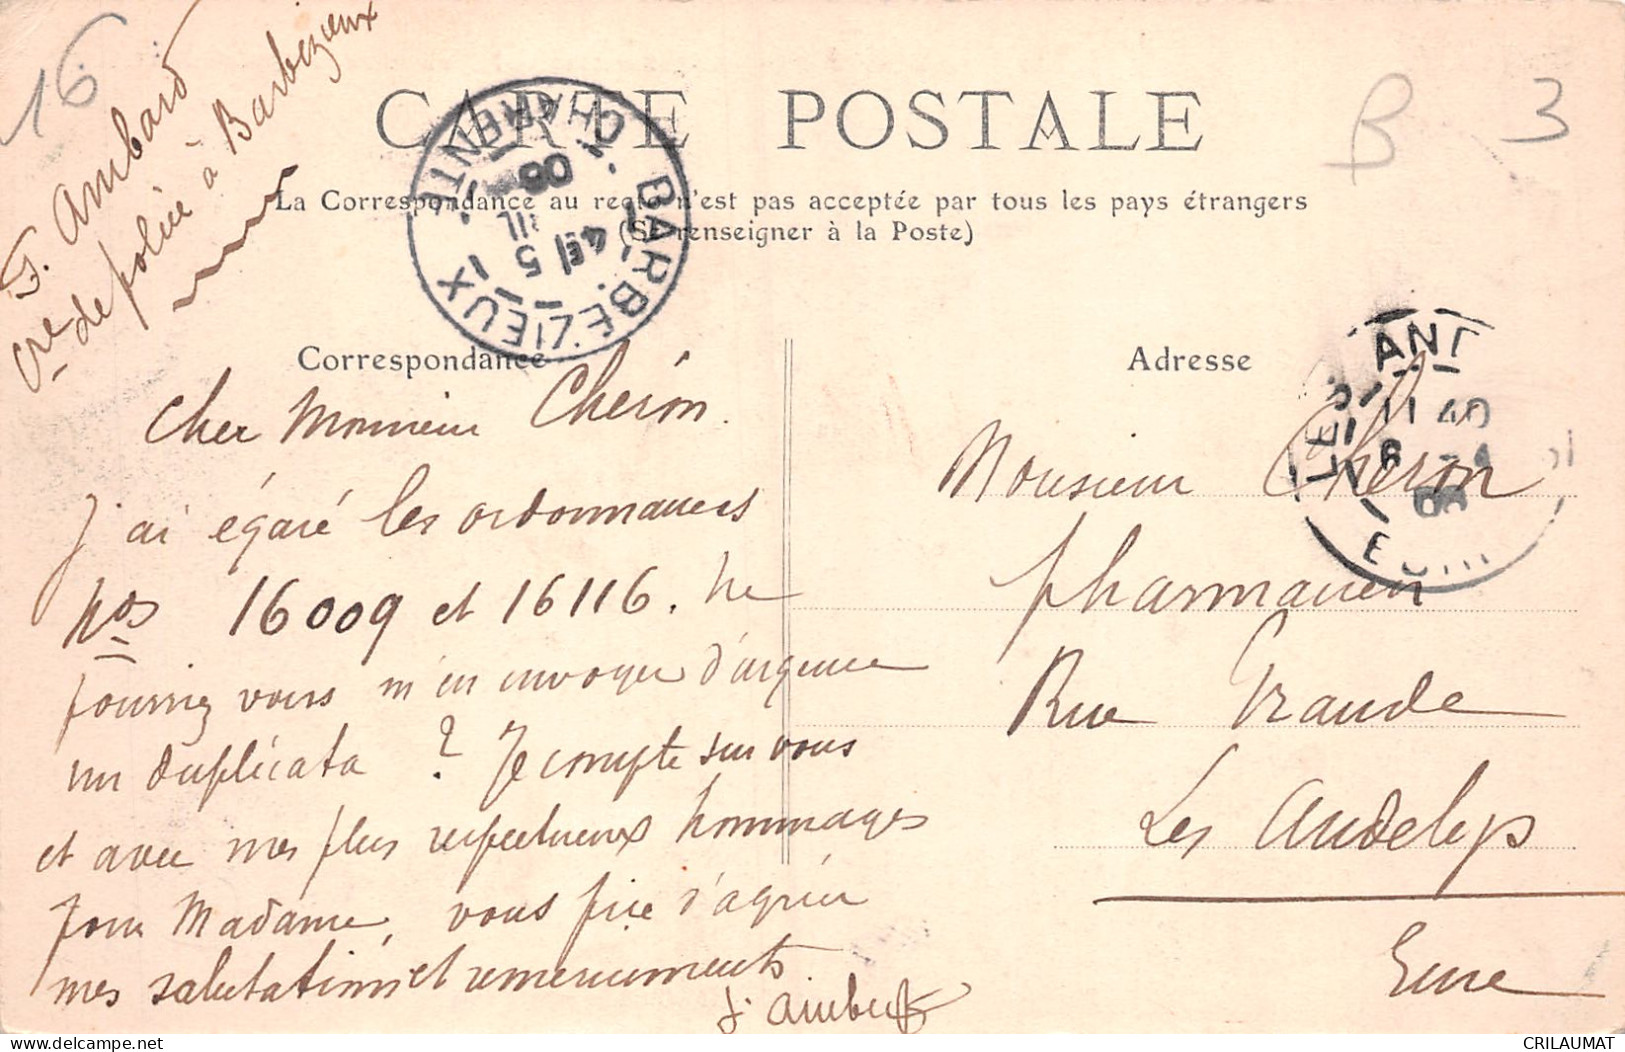 16
F. Ambard
Cre de police à Barbezieux
CARTE POSTALE
B 3
La Correspondance au recto n'est pas acceptée par tous les pays étrangers
(Se renseigner à la Poste)
BARBEZIEUX
CHARENTE
5
08
Correspondance
Cher Monsieur Cheron.
J'ai égaré les ordonnances
Nos 16009 et 16116. Ne
pourriez vous m'en envoyer d'urgence
un duplicata ? Je compte sur vous
et avec mes plus respectueux hommages
pour Madame, vous prie d'agréer
mes salutations et remerciements.
F. Ambard
Adresse
LES ANDELYS
11 40
EURE
Monsieur Cheron
pharmacien
Rue Grande
Les Andelys
Eure
www.delcampe.net
CRILAUMAT